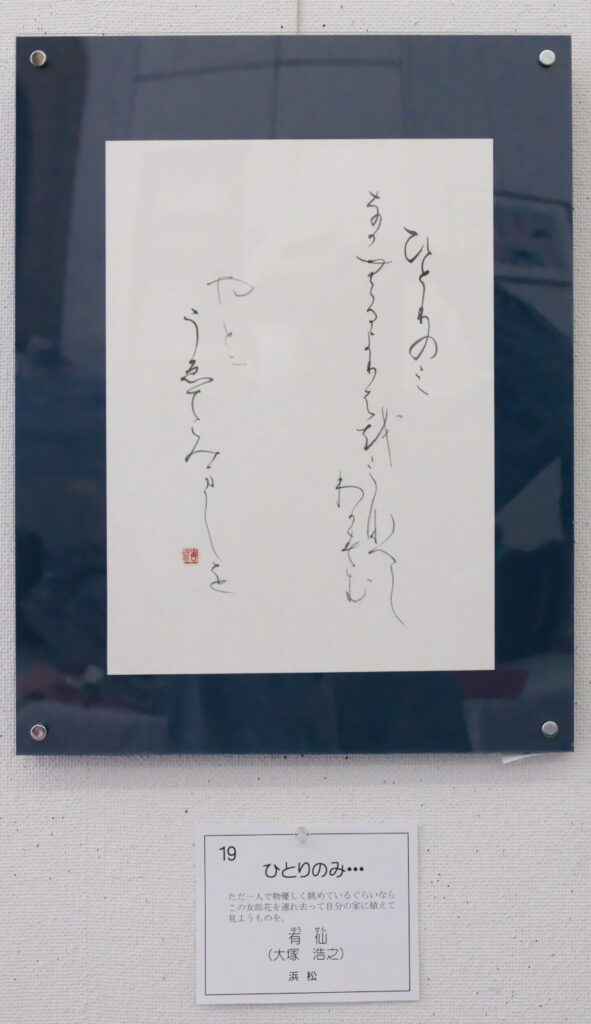 ひとりのみ
なかむるよりはをみなへし
わかすむ
やとに
うゑてみましを
19
ひとりのみ…
ただ一人で物優しく眺めているぐらいなら
この女郎花を連れ去って自分の家に植えて
見ようものを。
ゆう せん
有 仙
(大塚 浩之)
浜 松